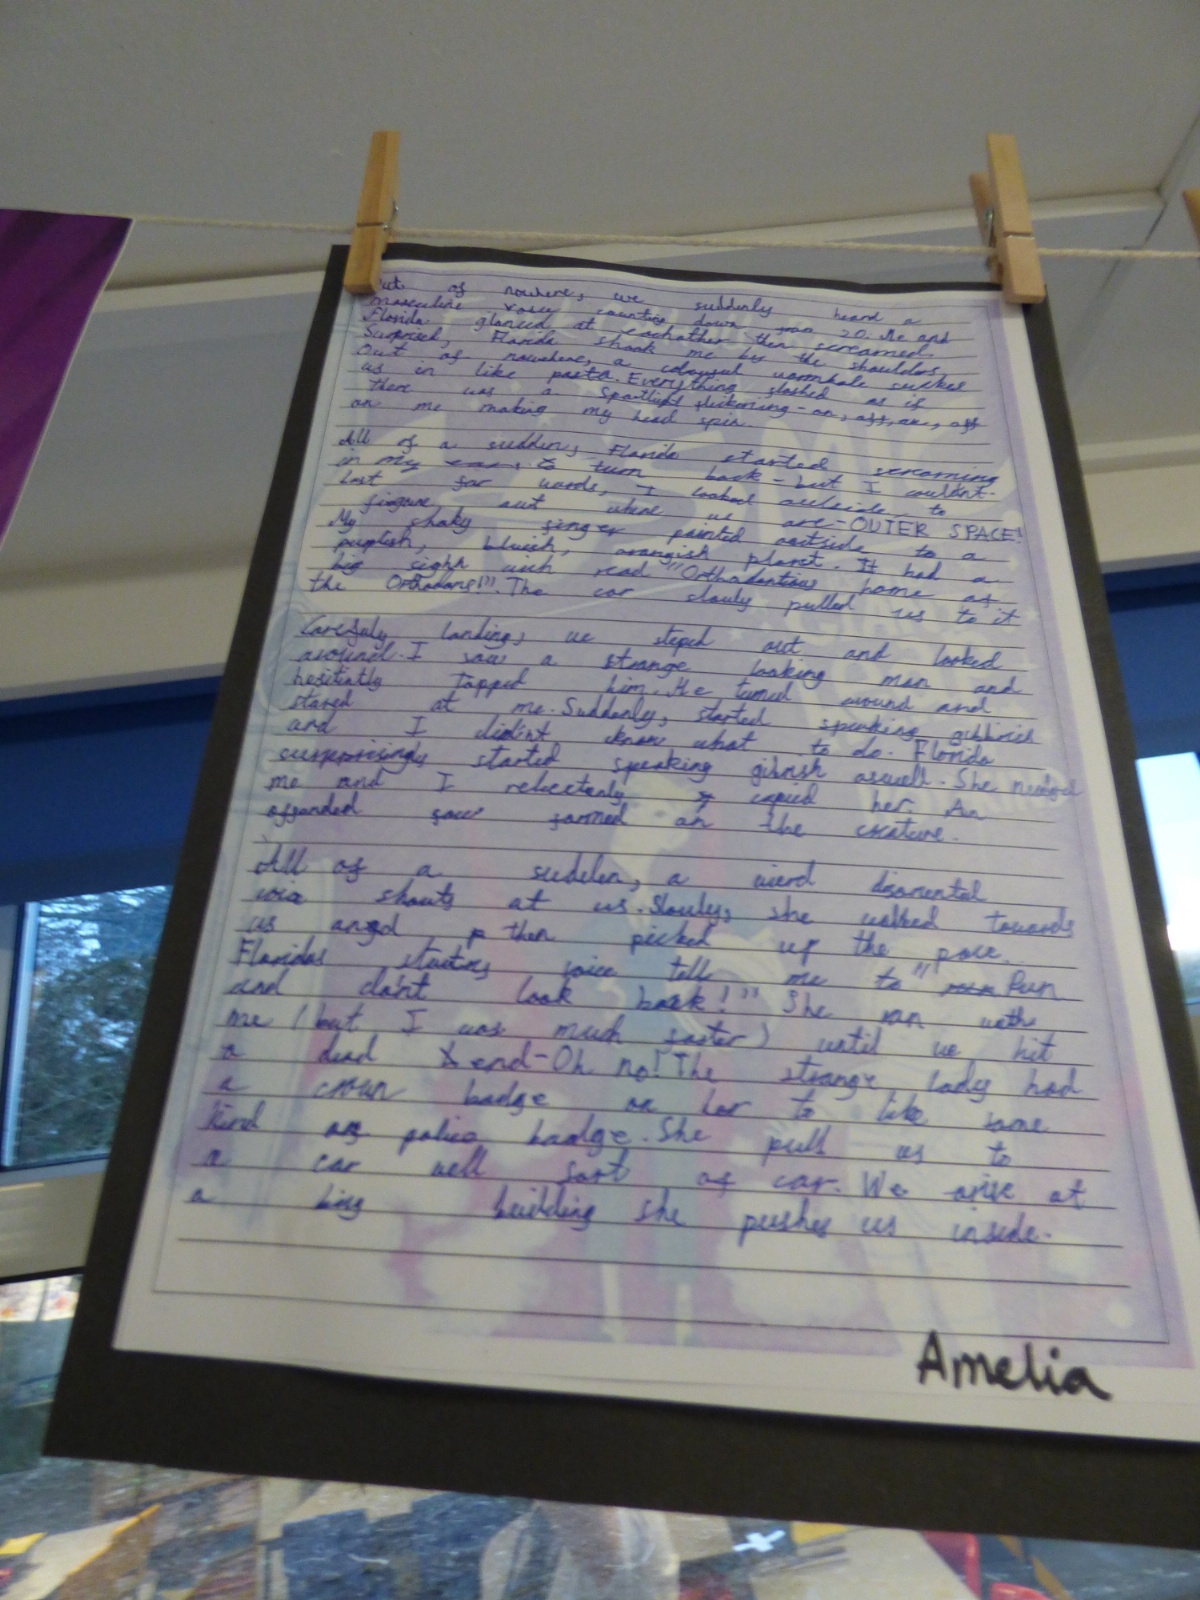 out of nowhere, we suddenly heard a
masculine counting down from 20. Me and
Florida glanced at eachother then screamed.
Surprised, Florida shook me by the shoulders.
Out of nowhere, a colourful wormhole sucked
us in like pasta. Everything flashed as if
there was a Spotlight flickering - on, off, on, off
on me making my head spin.
All of a sudden, Florida started screaming
in my to turn back - but I couldnt.
Lost for words, I looked outside to
figure out where we are - OUTER SPACE!
My shaky finger pointed outside to a
purplish, bluish, orangish planet. It had a
big sighn wich read "Orthodontious home of
the Orthodons!!". The car slowly pulled us to it
Carefuly landing, we steped out and looked
around. I saw a strange looking man and
hesitintly tapped him. He turned around and
stared at me. Suddenly, started speaking gibbrish
and I didint know what to do. Florida
surprisingly started speaking gibrish aswell. She
me and I relectenly copied her. An
offended formed on the creature.
All of a sudden, a wierd
voice shouts at us. Slowly, she walked towards
us and then picked up the pace.
Floridas voice tells me to " Run
and don't look back!" She ran with
me (but I was much faster) until we hit
a dead end - Oh no! The strange lady had
a badge on her to like some
kind of police badge. She pull us to
a car well sort of car. We arive at
a big building she pushes us inside.
Amelia